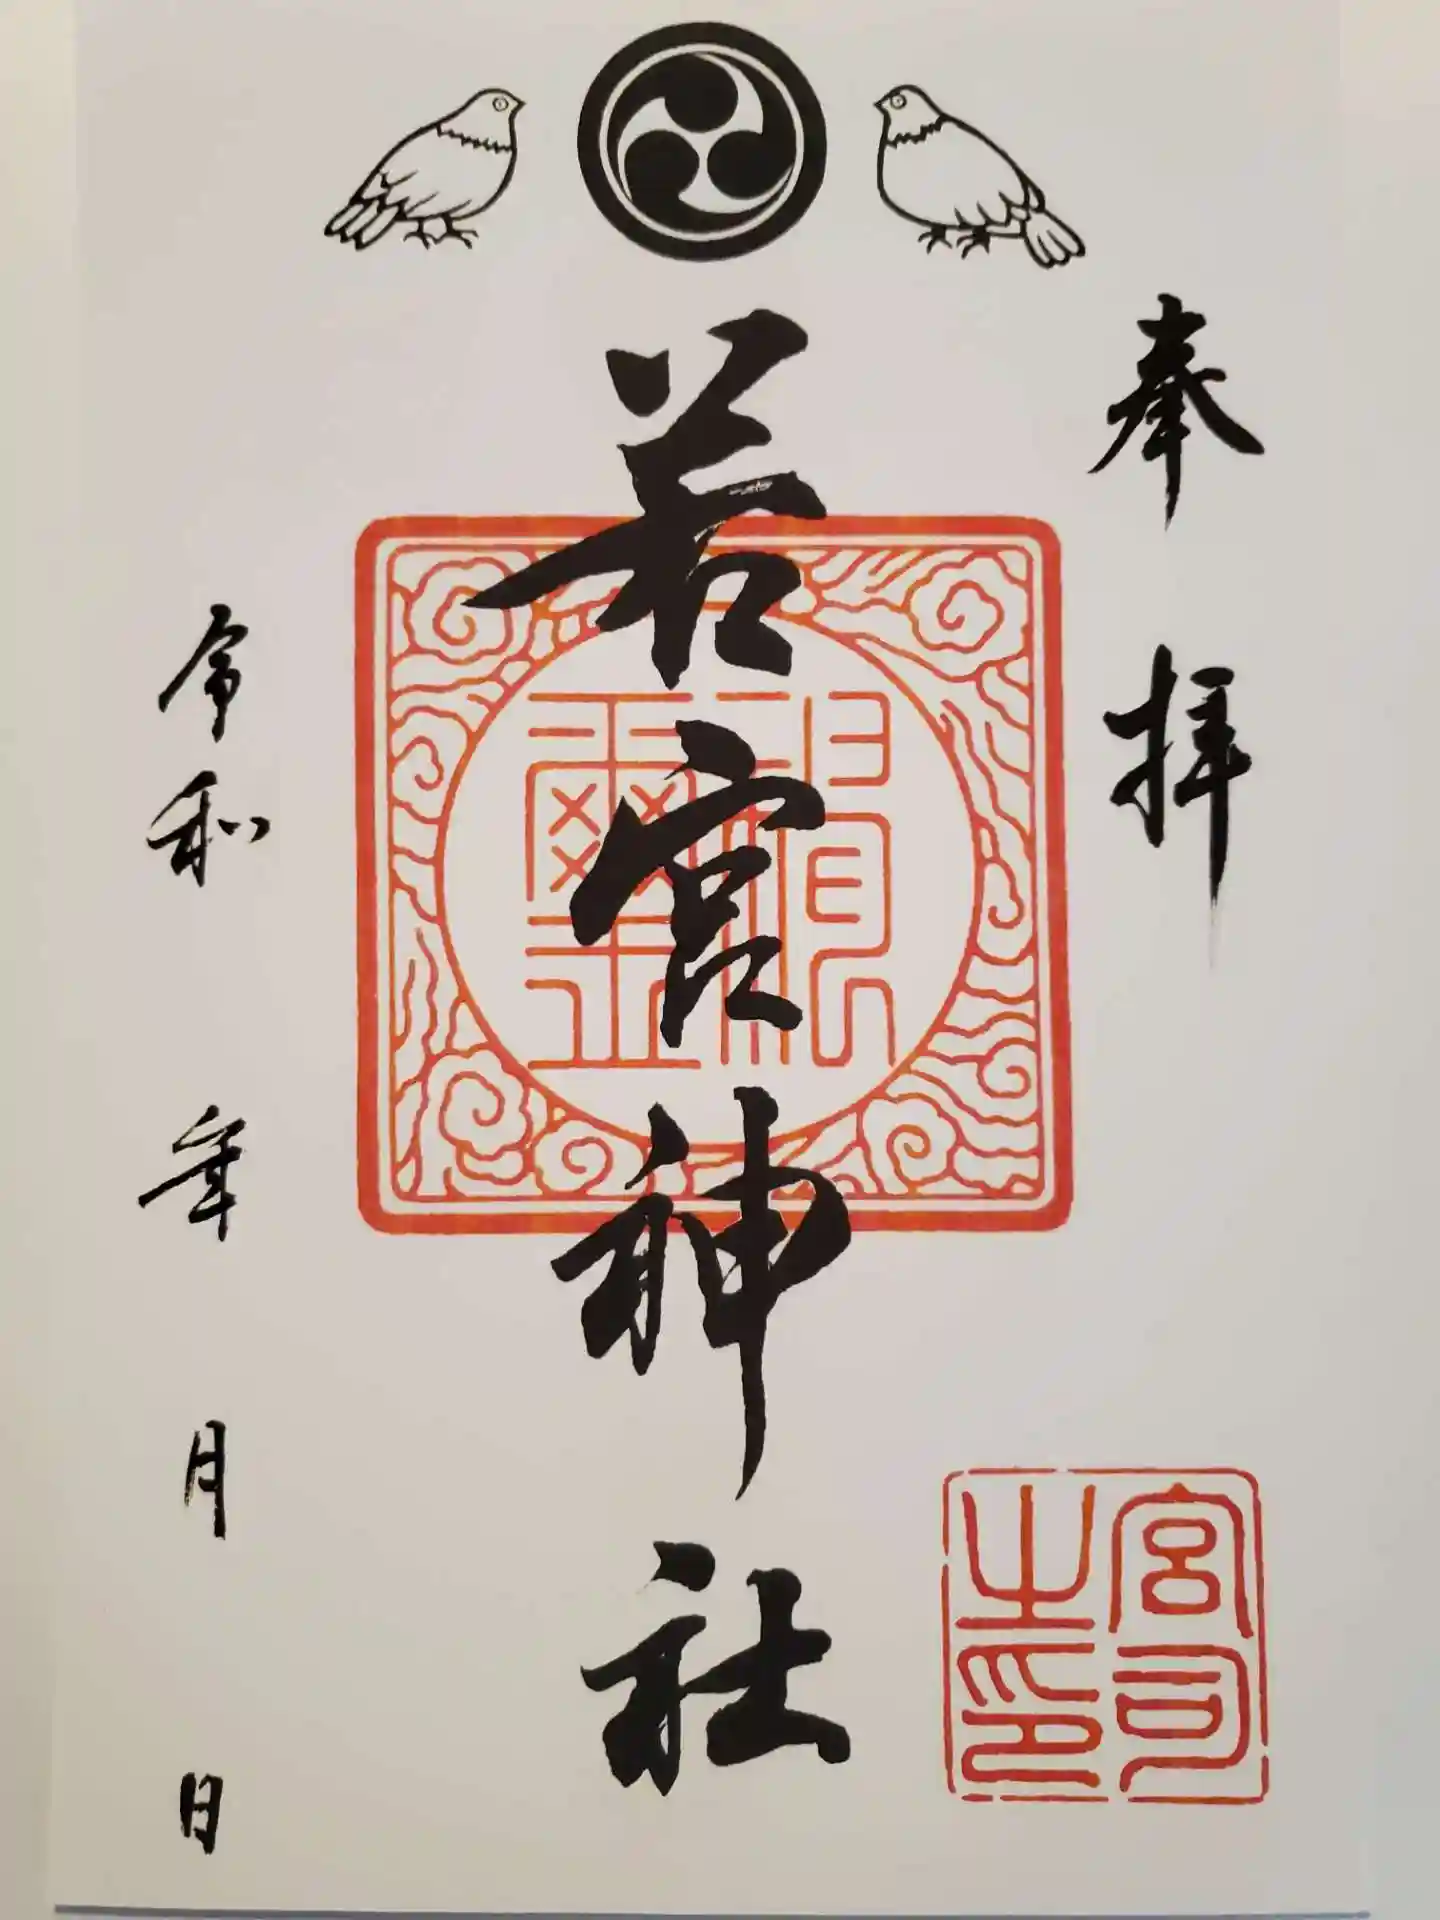 奉拝
若宮神社
令和 年 月 日
宮司
之印